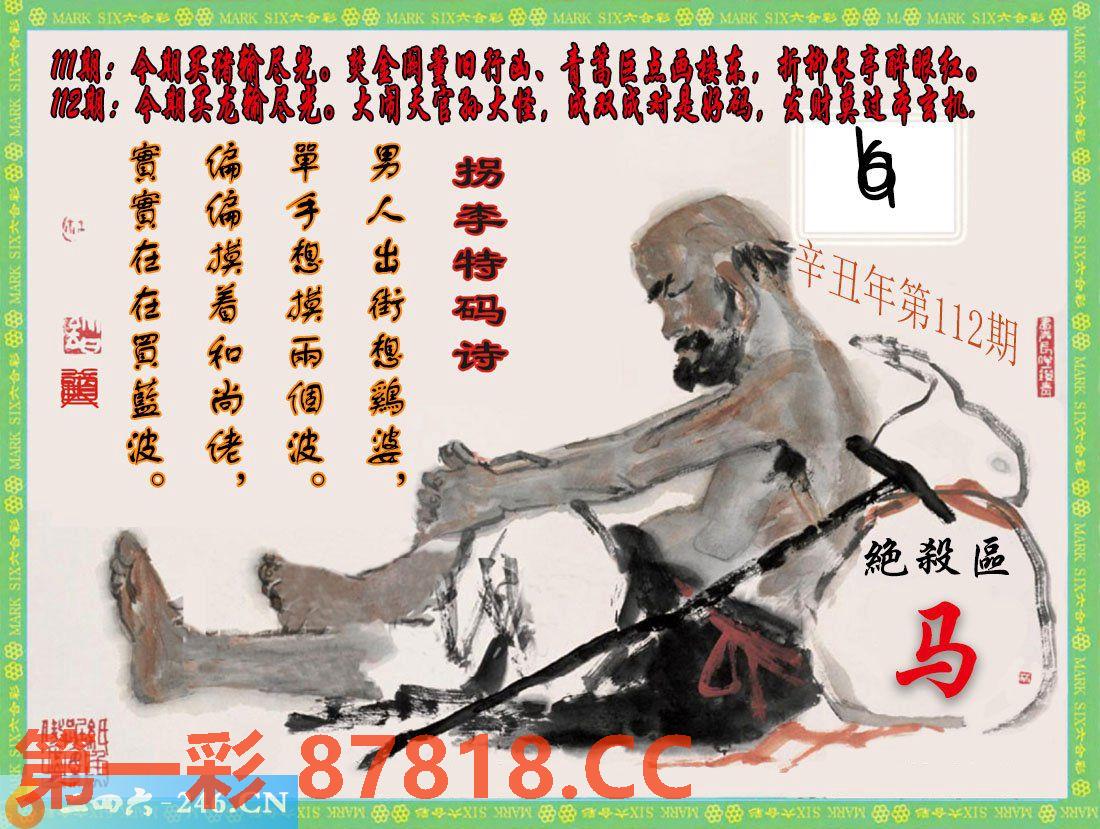 MARK SIX六合彩 MARK SIX六合彩 MARK SIX六合彩 MARK SIX六合彩 MARK SIX六合彩
111期：今期买猪输尽光。焚金阁董旧行山、青篙巨点画楼东，折柳长亭醉眼红。
112期：今期买龙输尽光。大闹天官孙大怪，成双成对是好码，发财莫过本玄机.
拐李特码诗
男人出街想鷄婆，
單手想摸兩個波。
偏偏摸着和尚佬，
實實在在買藍波。
辛丑年第112期
絶殺區
马
第一彩 87818.CC
二四六-246.CN